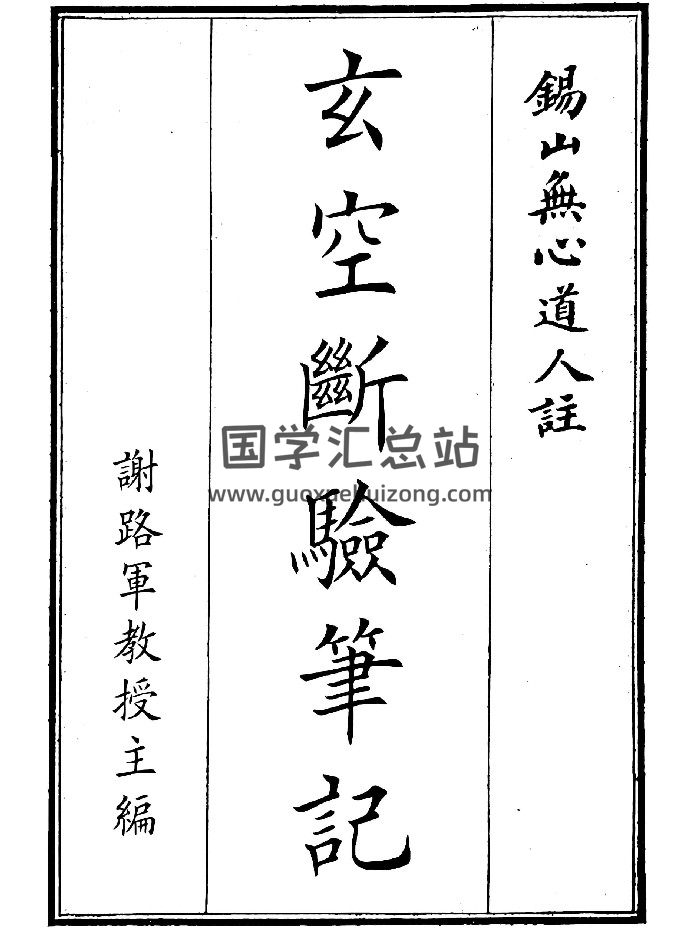 錫山無心道人註
玄空斷驗筆記
謝路軍教授主編
国学汇总站
www.guoxuehuizong.com